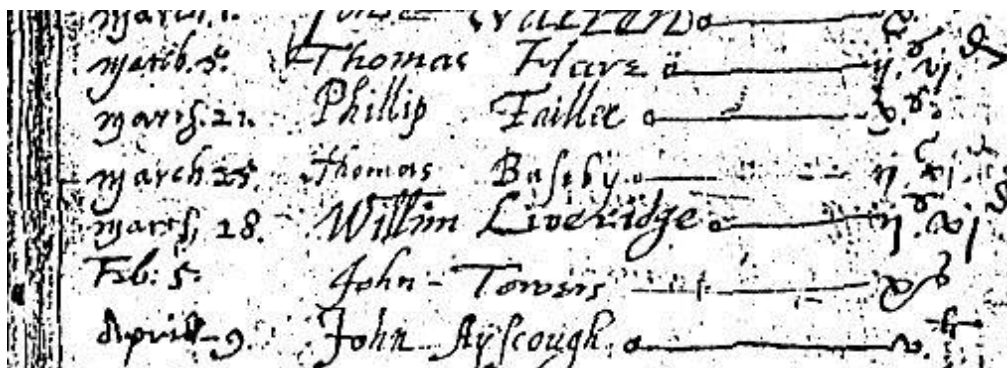 March. 5. Thomas Hare ij. s vj. d
March. 21. Phillip Faillie v. s
March 25. Thomas Baseby ij. s vj. d
March, 28. Willim Liveridge ij. s vj d
Feb: 5. John Towers x s
Aprill 9. John Ayscough v. s